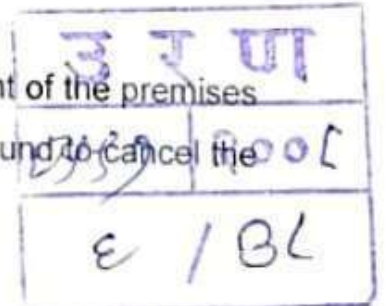 उ र ण
nt of the premises
und to cancel the
२००८
६ / ३८